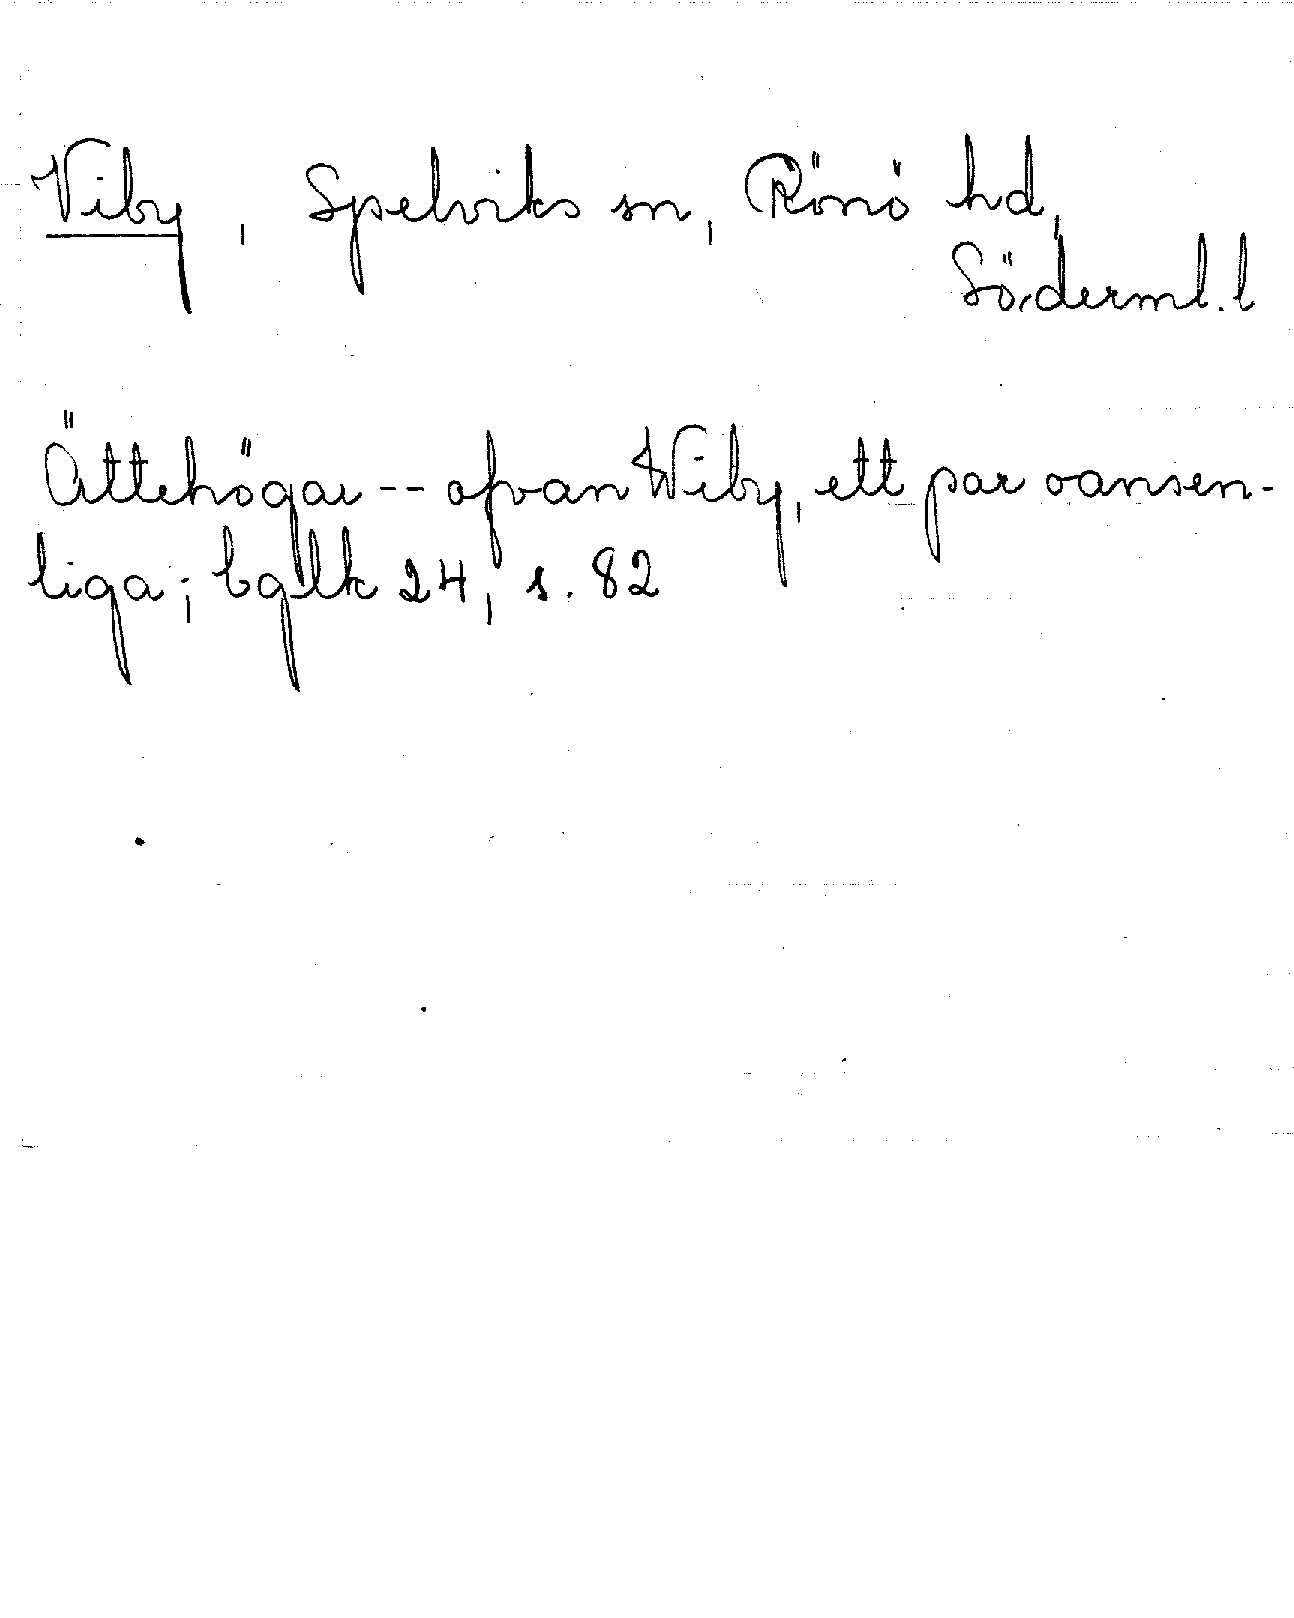 Viby, Spelviks sn, Rönö hd,
Söderml. l
Ättehögar -- ofvan Wiby, ett par oansen-
liga; bglk 24, s. 82